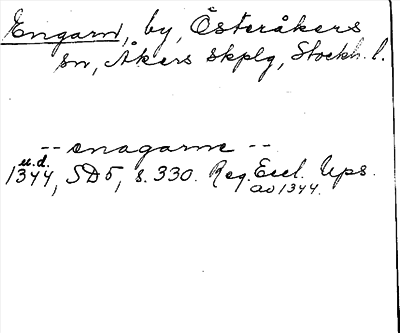 Engarn, by, Österåkers
sn, Åkers skplg, Stockh. l.
-- enagarne --
u.d.
1344, SD5, s. 330. Reg. Eccl. Ups.
av 1344.